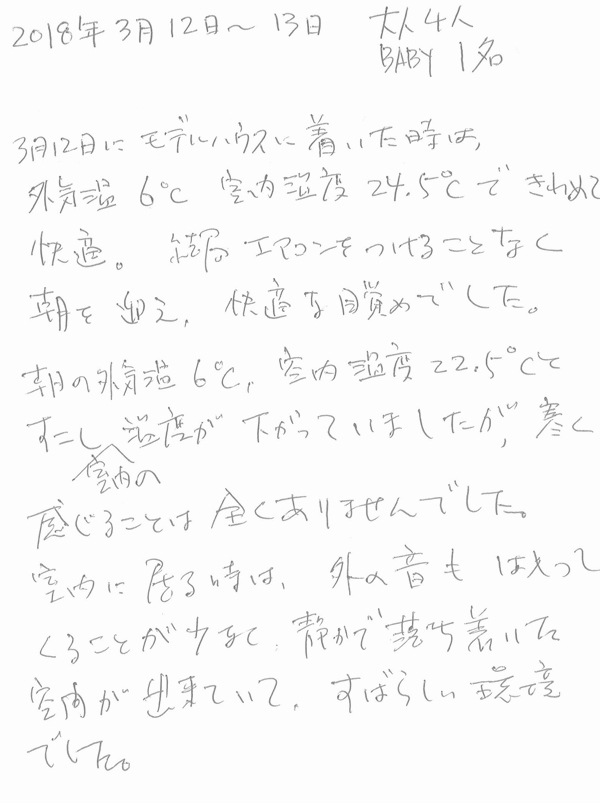 2018年3月12日～13日 大人4人
BABY 1名
3月12日にモデルハウスに着いた時は、
外気温 6℃ 室内温度 24.5℃で きわめて
快適。 結局 エアコンをつけることなく
朝を迎え、快適な目覚めでした。
朝の外気温 6℃、室内温度 22.5℃と
すこし 温度が 下がっていましたが、寒く
室内の
感じることは 全くありませんでした。
室内に居る時は、外の音も はいって
くることが少なく、静かで落ち着いた
室内が出来ていて、すばらしい環境
でした。